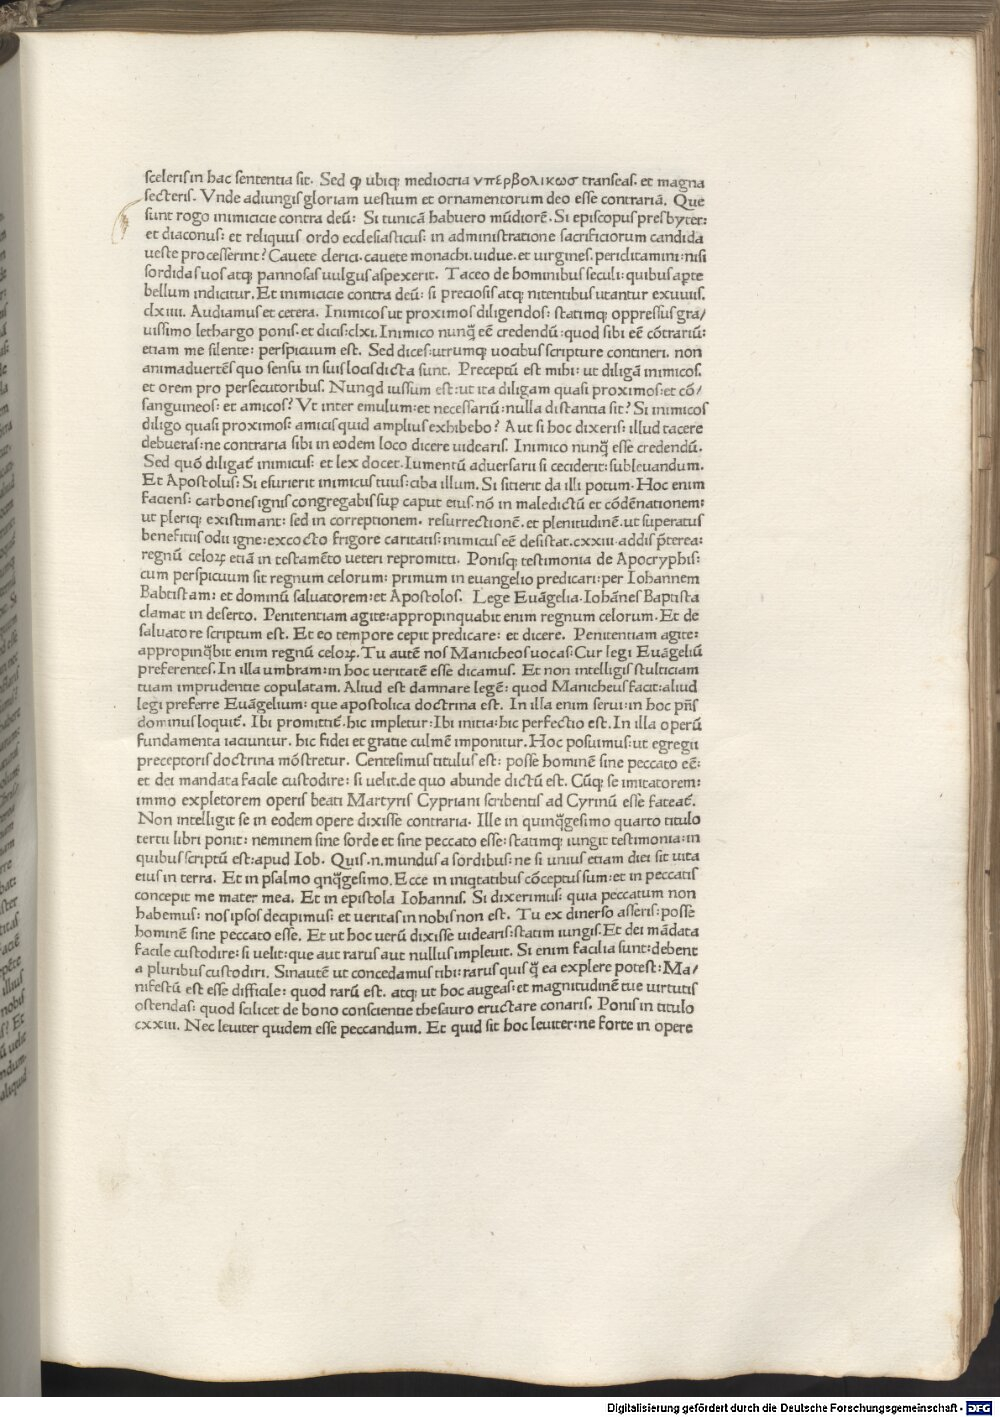 sceleris in hac sententia sit. Sed ꝙ ubiqꝫ mediocria υπερβολικωσ transeas. et magna
secteris. Vnde adiungis gloriam uestium et ornamentorum deo esse contrariā. Que
sunt rogo inimicicie contra deū: Si tunicā habuero mūdiorē. Si episcopus presbyter:
et diaconus: et reliquus ordo ecclesiasticus: in administratione sacrificiorum candida
ueste processerint? Cauete clerici. cauete monachi. uidue. et uirgines. periclitamini: nisi
sordidas uos atqꝫ pannosas uulgus aspexerit. Taceo de hominibus seculi: quibus apte
bellum indicitur. Et inimicicie contra deū: si preciosis atqꝫ nitentibus utantur exuuiis.
clxiiii. Audiamus et cetera. Inimicos ut proximos diligendos: statimqꝫ oppressus gra/
uissimo lethargo ponis. et dicis: clxi. Inimico nunq̄ eē credendū: quod sibi eē cōtrariū:
etiam me silente: perspicuum est. Sed dices: utrumqꝫ uocibus scripture contineri. non
animaduertēs quo sensu in suis locis dicta sunt. Preceptū est mihi: ut diligā inimicos.
et orem pro persecutoribus. Nunqd iussum est: ut ita diligam quasi proximos: et cō/
sanguineos: et amicos? Vt inter emulum: et necessariū: nulla distantia sit? Si inimicos
diligo quasi proximos: amicis quid amplius exhibebo? Aut si hoc dixeris: illud tacere
debueras: ne contraria sibi in eodem loco dicere uidearis. Inimico nunq̄ esse credendū.
Sed quō diligat̄ inimicus: et lex docet. Iumentū aduersarii si ceciderit: subleuandum.
Et Apostolus: Si esurierit inimicus tuus: ciba illum. Si sitierit da illi potum. Hoc enim
faciens: carbones ignis congregabis sup caput eius. nō in maledictū et cōdēnationem:
ut pleriqꝫ existimant: sed in correptionem. resurrectionē. et plenitudinē. ut superatus
benefitiis odii igne: excocto frigore caritatis: inimicus eē desistat. cxxiii. addis p̄terea:
regnū celoꝝ etiā in testamēto ueteri repromitti. Ponisqꝫ testimonia de Apocryphis:
cum perspicuum sit regnum celorum: primum in euangelio predicari: per Iohannem
Babtistam: et dominū saluatorem: et Apostolos. Lege Euāgelia. Iohānes Baptista
clamat in deserto. Penitentiam agite: appropinquabit enim regnum celorum. Et de
saluatore scriptum est. Et eo tempore cepit predicare: et dicere. Penitentiam agite:
appropinq̄bit enim regnū celoꝝ. Tu autē nos Manicheos uocas: Cur legi Euāgeliū
preferentes. In illa umbram: in hoc ueritatē esse dicamus. Et non intelligis stulticiam
tuam imprudentie copulatam. Aliud est damnare legē: quod Manicheus facit: aliud
legi preferre Euāgelium: que apostolica doctrina est. In illa enim serui: in hoc pn̄s
dominus loquit̄. Ibi promittit̄. hic impletur: Ibi initia: hic perfectio est. In illa operū
fundamenta iaciuntur. hic fidei et gratie culmē imponitur. Hoc posuimus: ut egregii
preceptoris doctrina mōstretur. Centesimus titulus est: posse hominē sine peccato eē:
et dei mandata facile custodire: si uelit. de quo abunde dictū est. Cūqꝫ se imitatorem:
immo expletorem operis beati Martyris Cypriani scribentis ad Cyrinū esse fateat̄.
Non intelligit se in eodem opere dixisse contraria. Ille in quinq̄gesimo quarto titulo
tertii libri ponit: neminem sine sorde et sine peccato esse: statimqꝫ iungit testimonia: in
quibus scriptū est: apud Iob. Quis .n. mundus a sordibus: ne si unius etiam diei sit uita
eius in terra. Et in psalmo qnq̄gesimo. Ecce in iniqtatibus cōceptus sum: et in peccatis
concepit me mater mea. Et in epistola Iohannis. Si dixerimus: quia peccatum non
habemus: nos ipsos decipimus: et ueritas in nobis non est. Tu ex dinerso asseris: posse
hominē sine peccato esse. Et ut hoc uerū dixisse uidearis: statim iungis. Et dei mādata
facile custodire: si uelit: que aut rarus aut nullus impleuit. Si enim facilia sunt: debent
a pluribus custodiri. Sinautē ut concedamus tibi: rarus quis q̄ ea explere potest: Ma/
nifestū est esse difficile: quod rarū est. atqꝫ ut hoc augeas: et magnitudinē tue uirtutis
ostendas: quod scilicet de bono conscientie thesauro eructare conaris. Ponis in titulo
cxxiii. Nec leuiter quidem esse peccandum. Et quid sit hoc leuiter: ne forte in opere
Digitalisierung gefördert durch die Deutsche Forschungsgemeinschaft - DFG